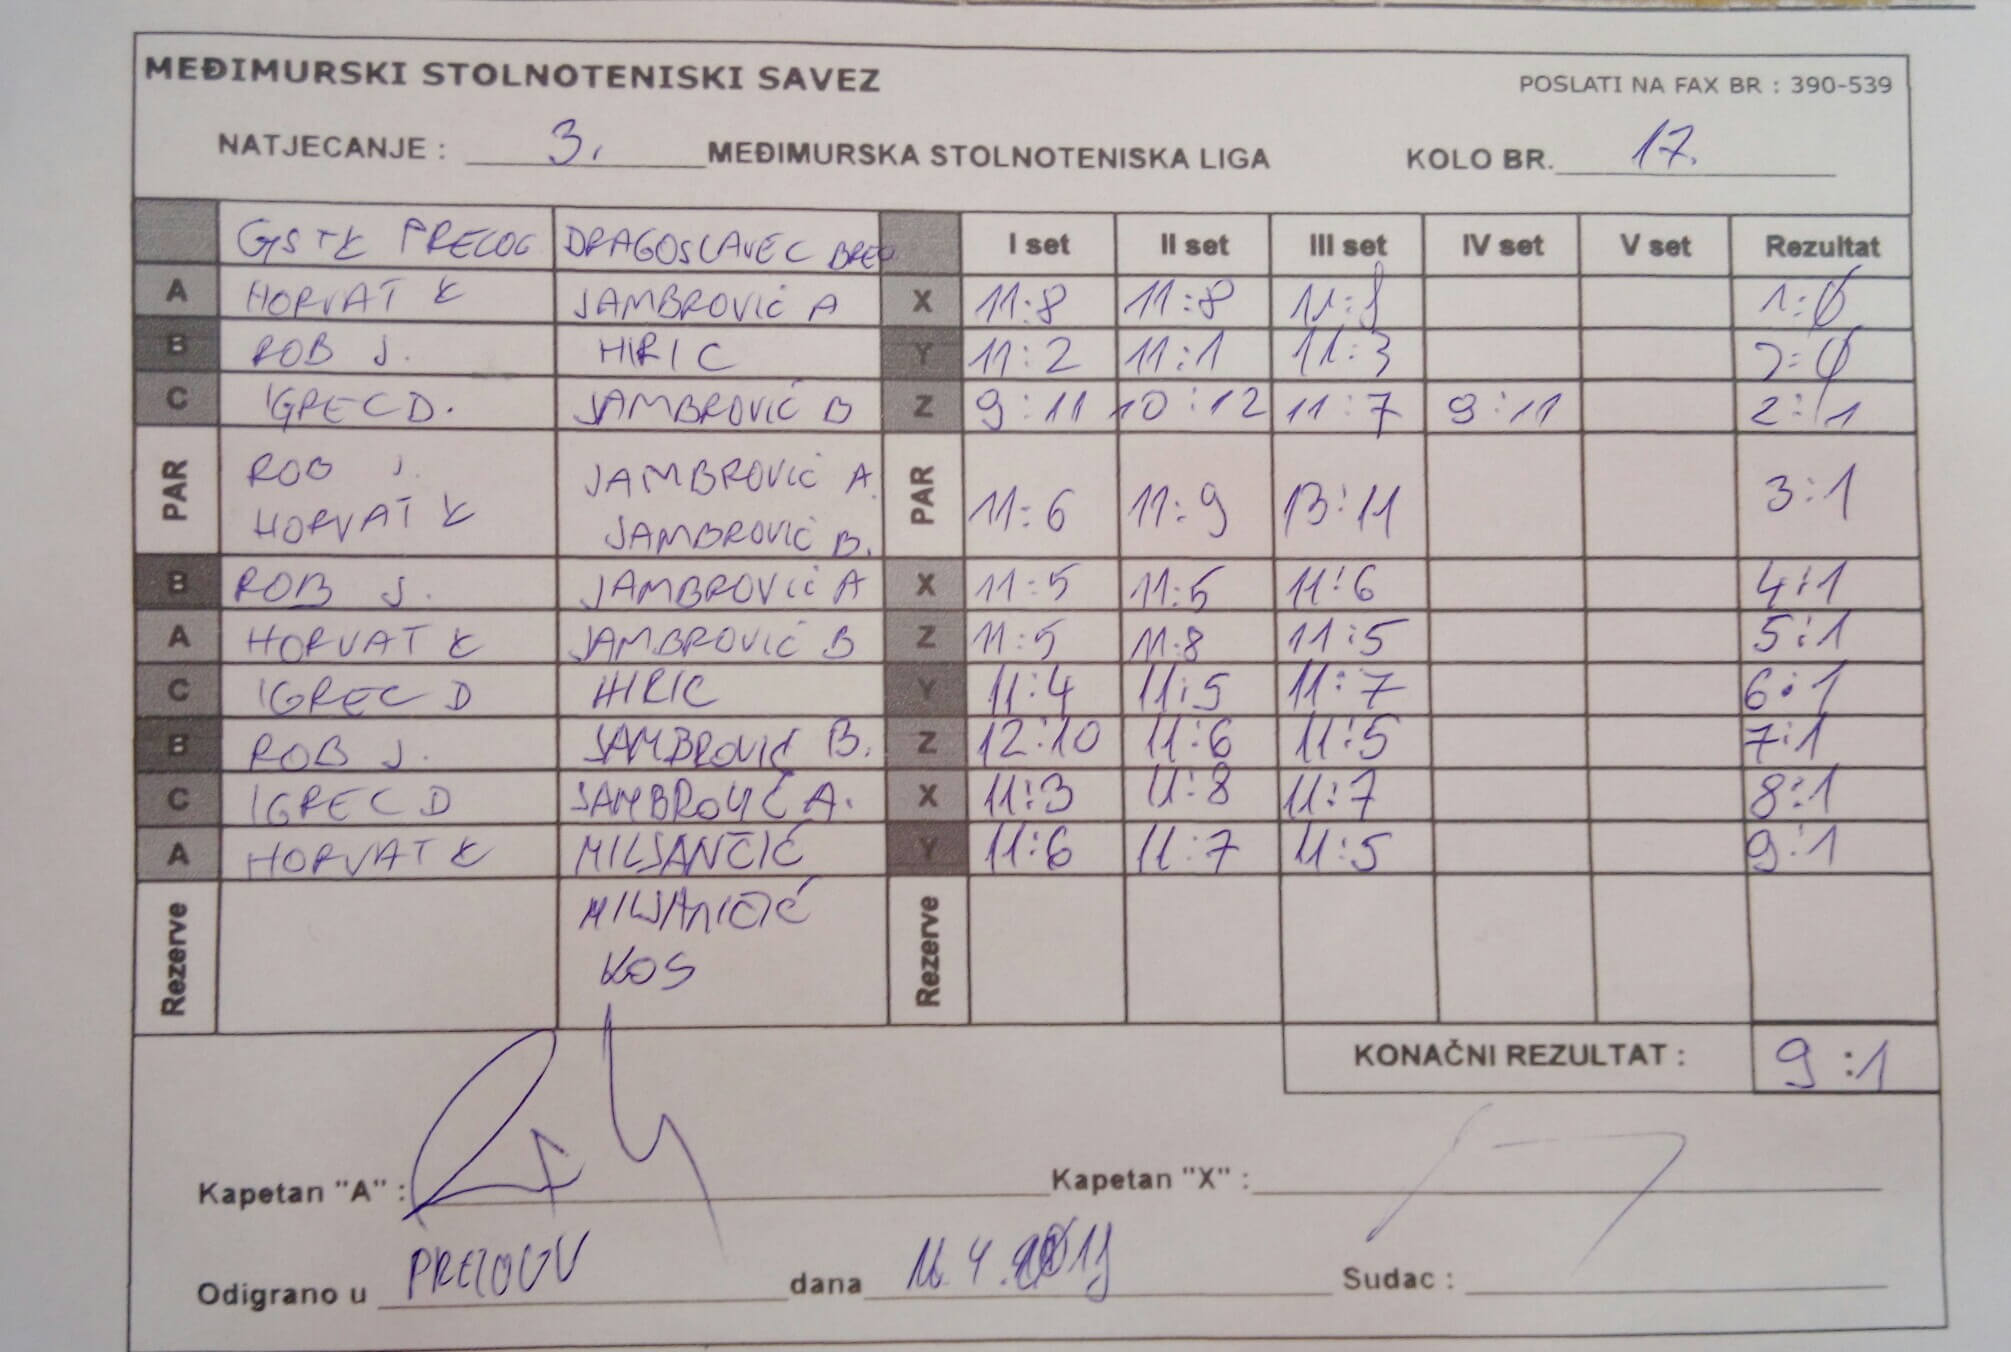 MEĐIMURSKI STOLNOTENISKI SAVEZ
POSLATI NA FAX BR : 390-539
NATJECANJE : 3. MEĐIMURSKA STOLNOTENISKA LIGA KOLO BR. 17.
GSTK PRELOG DRAGOSLAVEC BREG I set II set III set IV set V set Rezultat
A HORVAT K JAMBROVIĆ A X 11:8 11:8 11:8 1:0
B ROB J. HIRIC Y 11:2 11:1 11:3 2:0
C IGREC D. JAMBROVIĆ B Z 9:11 10:12 11:7 9:11 2:1
PAR ROB J. HORVAT K JAMBROVIĆ A. JAMBROVIĆ B. PAR 11:6 11:9 13:11 3:1
B ROB J. JAMBROVIĆ A X 11:5 11:5 11:6 4:1
A HORVAT K JAMBROVIĆ B Z 11:5 11:8 11:5 5:1
C IGREC D HIRIC Y 11:4 11:5 11:7 6:1
B ROB J. JAMBROVIĆ B. Z 12:10 11:6 11:5 7:1
C IGREC D JAMBROVIĆ A. X 11:3 11:8 11:7 8:1
A HORVAT K MILJANČIĆ Y 11:6 11:7 11:5 9:1
Rezerve MILJANIČIĆ Rezerve
KOS
KONAČNI REZULTAT : 9:1
Kapetan "A" : Kapetan "X" :
Odigrano u PRELOGU dana Sudac :